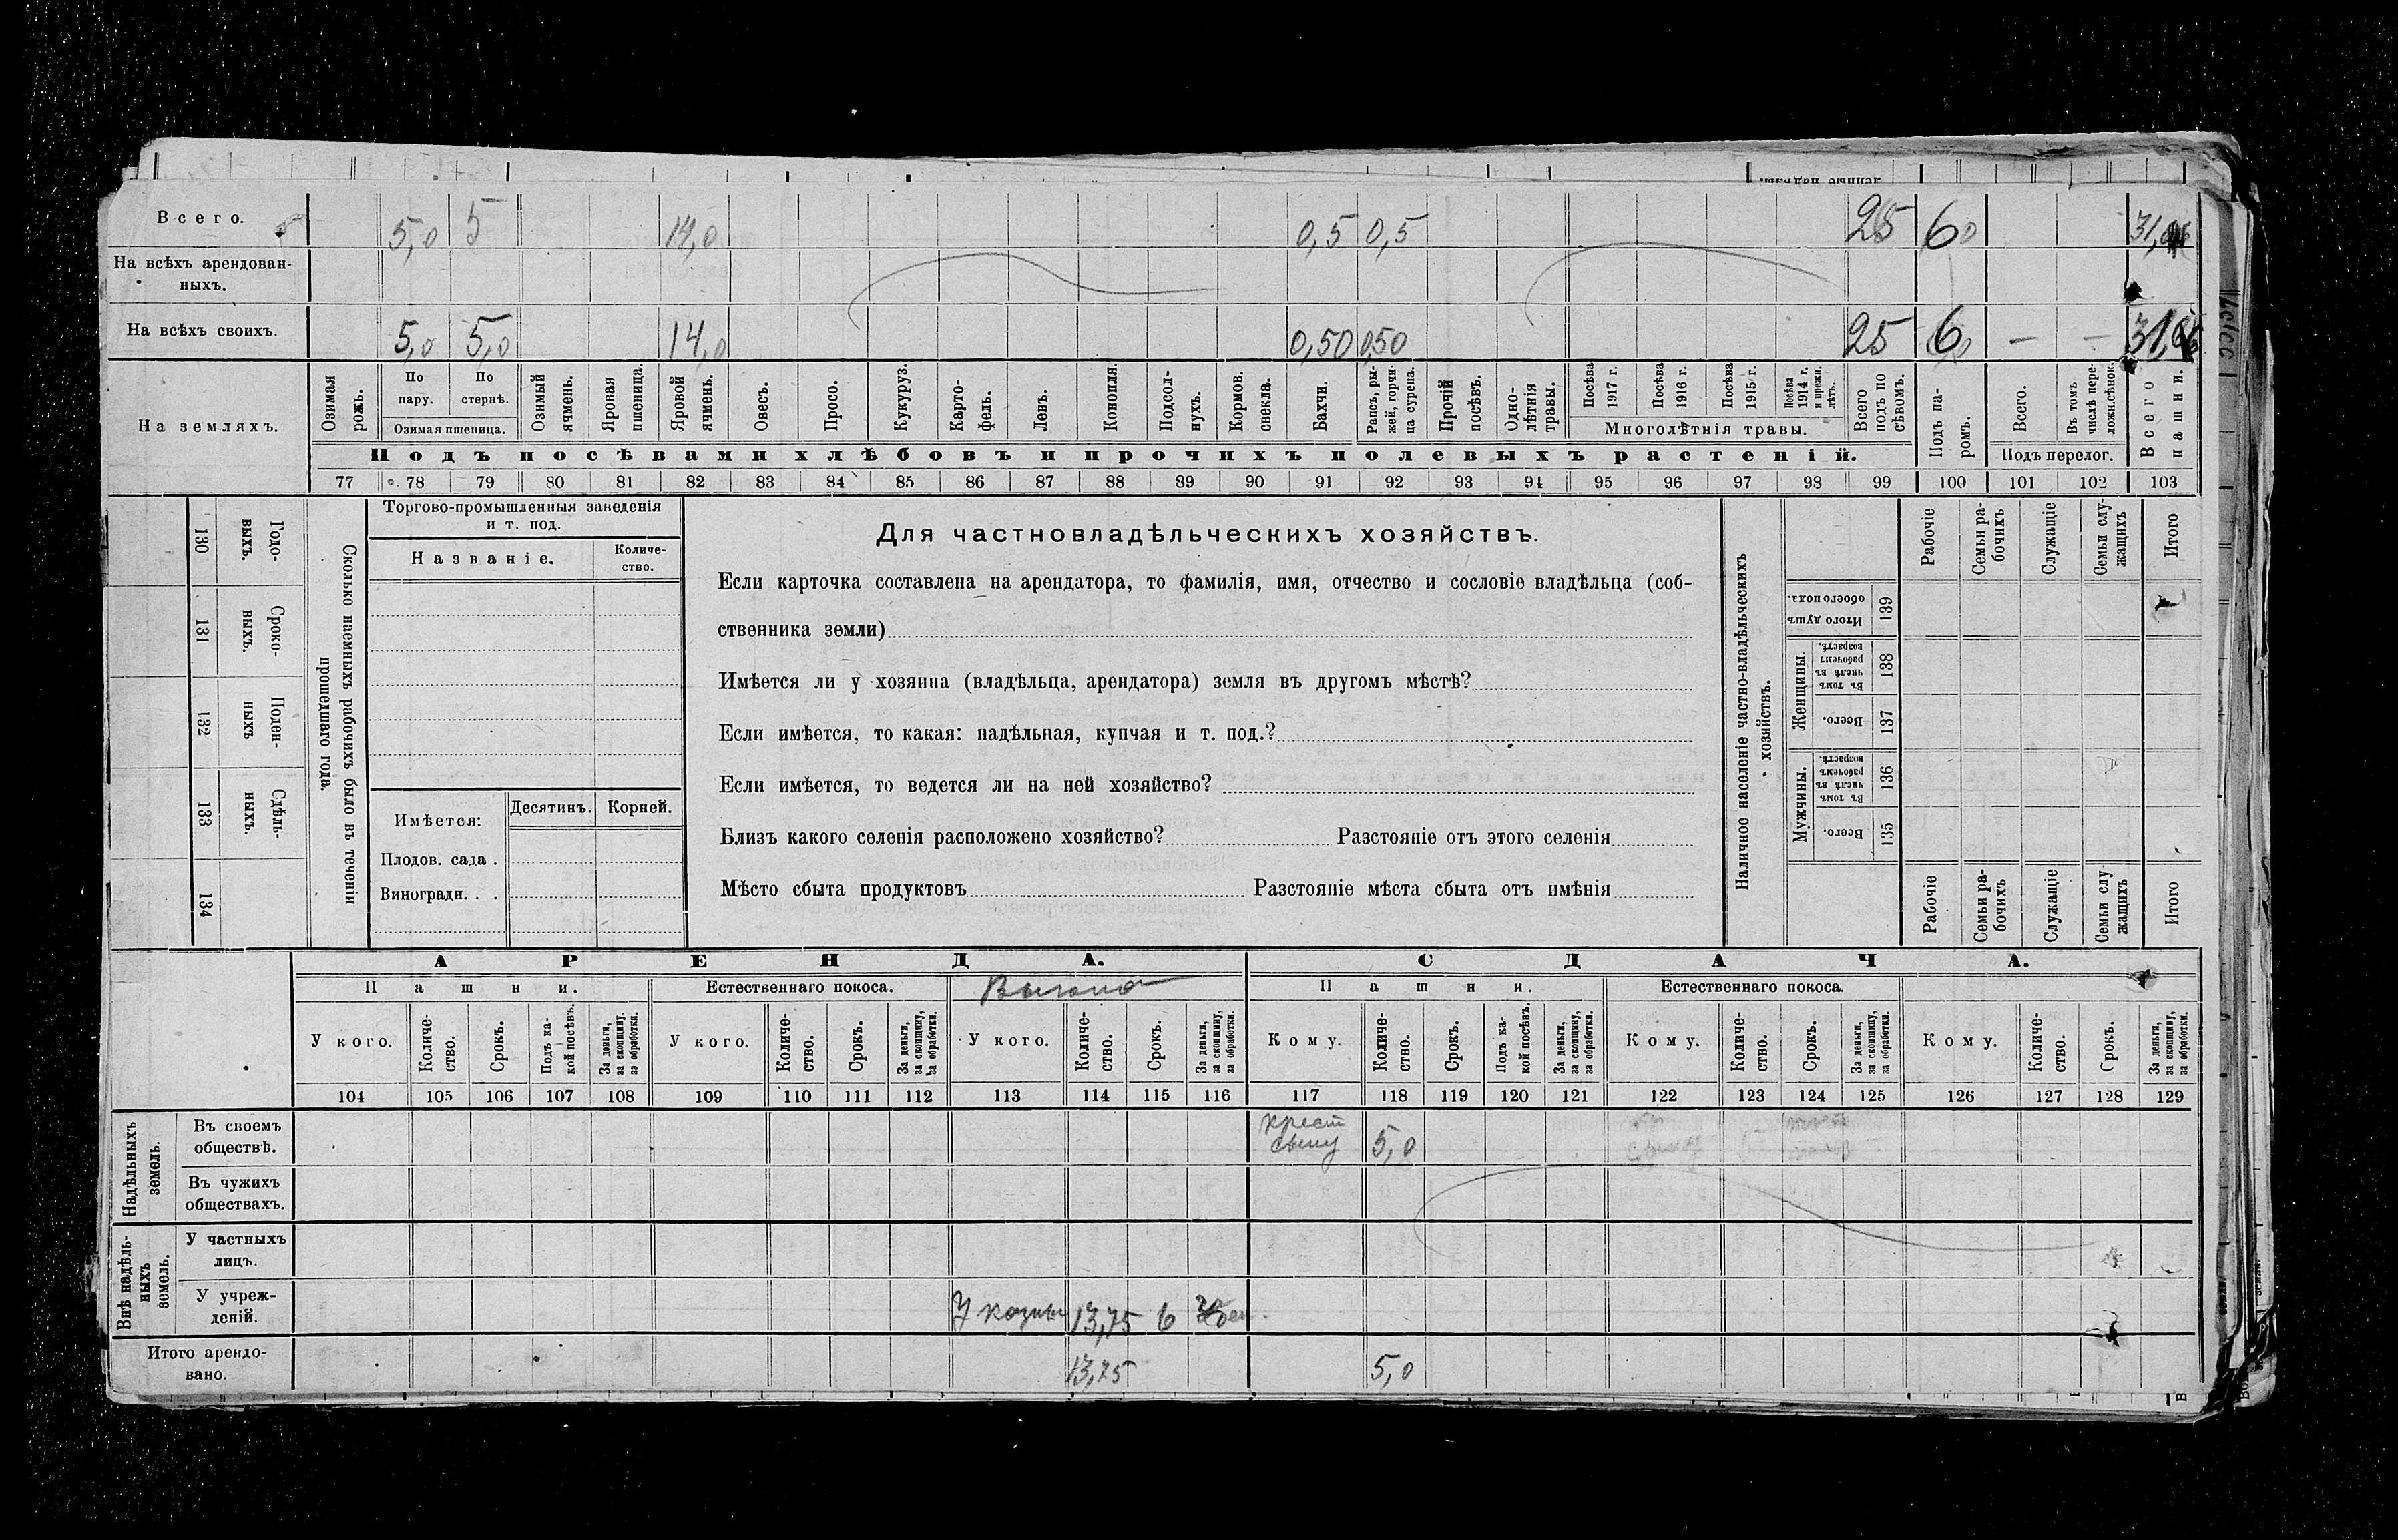 Всего. 5,0 5 14,0 0,5 0,5 25 60
На всѣхъ арендован-
ныхъ.
На всѣхъ своихъ. 5,0 5,0 14,0 0,50 0,50 25 6,0 — —
На земляхъ.
Озимая рожь.
По пару.
По стернѣ.
Озимая пшеница.
Озимый ячмень.
Яровая пшеница.
Яровой ячмень.
Овесъ.
Просо.
Кукуруз.
Карто-
фель.
Ленъ.
Конопля.
Подсол-
нухъ.
Кормов.
свекла.
Бахчи.
Рапсъ, ры-
жей, горчи-
ца сурепа.
Прочій
посѣвъ.
Одно-
лѣтнія
травы.
Посѣва
1917 г.
Посѣва
1916 г.
Посѣва
1915 г.
Посѣва
1914 г.
и прежн.
лѣтъ.
Многолѣтнія травы.
Всего
подъ по
сѣвомъ.
Подъ па-
ромъ.
Всего.
Въ томъ
числѣ пере-
ложн.сѣнок.
Подъ перелог.
Всего
пашни.
Подъ посѣвами хлѣбовъ и прочихъ полевыхъ растеній.
77 78 79 80 81 82 83 84 85 86 87 88 89 90 91 92 93 94 95 96 97 98 99 100 101 102 103
130 Годо-
выхъ.
131 Сроко-
выхъ.
132 Поден-
ныхъ
133 Сдѣль-
ныхъ.
134
Сколько наемныхъ рабочихъ было въ теченіи
прошедшаго года.
Торгово-промышленныя заведенія
и т. под.
Названіе.
Количе-
ство.
Имѣется:
Десятинъ. Корней.
Плодов. сада .
Виноградн. . .
Для частновладѣльческихъ хозяйствъ.
Если карточка составлена на арендатора, то фамилія, имя, отчество и сословіе владѣльца (соб-
ственника земли)
Имѣется ли у хозяина (владѣльца, арендатора) земля въ другомъ мѣстѣ?
Если имѣется, то какая: надѣльная, купчая и т. под.?
Если имѣется, то ведется ли на ней хозяйство?
Близъ какого селенія расположено хозяйство? Разстояніе отъ этого селенія
Мѣсто сбыта продуктовъ Разстояніе мѣста сбыта отъ имѣнія
Наличное населеніе частно-владѣльческихъ
хозяйствъ.
Рабочіе
Семьи ра-
бочихъ
Служащіе
Семьи слу-
жащихъ
Итого
Итого душъ
обоего пола.
139
Женщины.
Въ томъ
числѣ въ
рабочемъ
возрастѣ.
138
Всего.
137
Мужчины.
Въ томъ
числѣ въ
рабочемъ
возрастѣ.
136
Всего.
135
Рабочіе
Семьи ра-
бочихъ
Служащіе
Семьи слу
жащихъ
Итого
АРЕНДА. СДАЧА.
Пашни. Естественнаго покоса. Выгона Пашни. Естественнаго покоса.
У кого.
Количе-
ство.
Срокъ.
Подъ ка-
кой посѣвъ.
За деньги,
за скопщину,
за обработки.
У кого.
Количе-
ство.
Срокъ.
За деньги,
за скопщину,
за обработки.
У кого.
Количе-
ство.
Срокъ.
За деньги,
за скопщину,
за обработки.
Кому.
Количе-
ство.
Срокъ.
Подъ ка-
кой посѣвъ.
За деньги,
за скопщину,
за обработки.
Кому.
Количе-
ство.
Срокъ.
За деньги,
за скопщину,
за обработки.
Кому.
Количе-
ство.
Срокъ.
За деньги,
за скопщину,
за обработки.
104 105 106 107 108 109 110 111 112 113 114 115 116 117 118 119 120 121 122 123 124 125 126 127 128 129
Надѣльныхъ
земель.
Въ своемъ
обществѣ.
крест
сыну 5,0
Въ чужихъ
обществахъ.
Внѣ надѣль-
ныхъ
земель.
У частныхъ
лицъ.
У учреж-
деній.
У казны 13,75 6
Итого арендо-
вано. 13,75 5,0